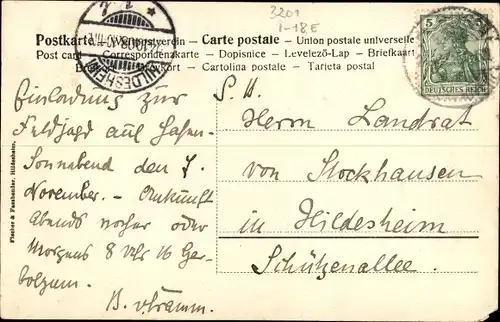 3201
1-18E
Postkarte Carte postale - Union postale universelle
Post card - Correspondenzkarte - Dopisnice - Levelező-Lap - Briefkaart
Cartolina postale - Tarjeta postal
HILDESHEIM
5
DEUTSCHES REICH
Einladung zur
Feldjagd auf Hasen.
Sonnabend den 7.
November. - Ankunft
Abends vorher oder
Morgens 8 Uhr 16 Ger-
bolzum.
B. v.
S. H.
Herrn Landrat
von Stockhausen
in Hildesheim
Schützenallee.